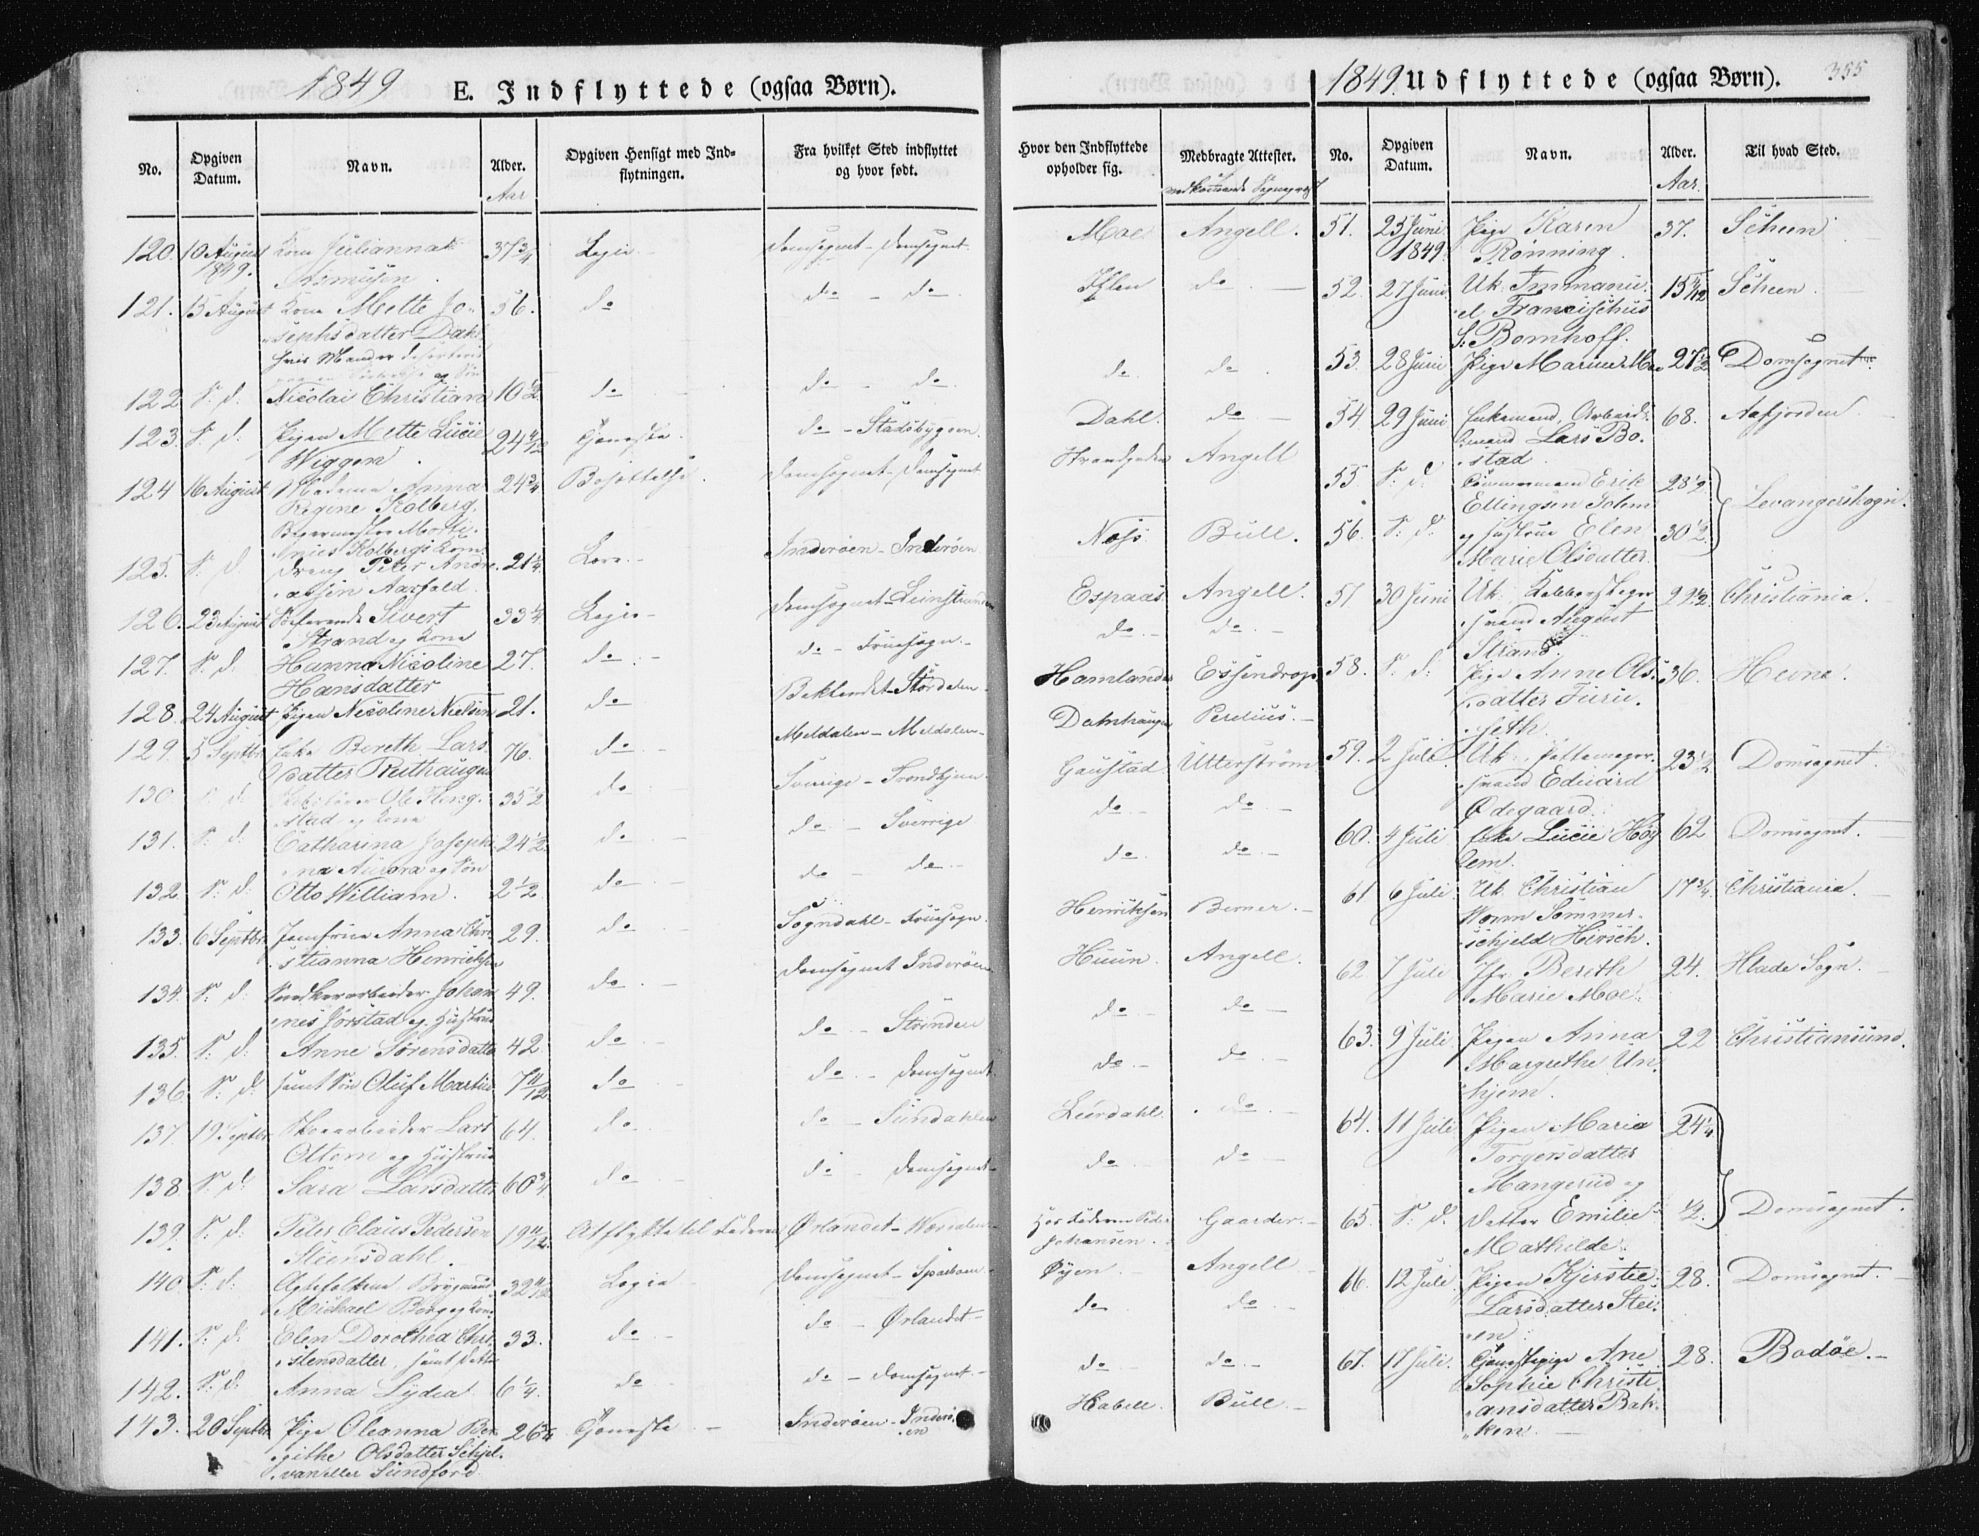 1849 E. Indflyttede (ogsaa Børn).
No. Opgiven Datum. Navn. Alder. Opgiven Hensigt med Indflytningen. Fra hvilket Sted indflyttet og hvor født. Hvor den Indflyttede opholder sig. Medbragte Attester.
Aar
120. 10 August 1849. Kone Julianna Asmusen 37 3/4 Logie Domsognet - Domsognet Moe Angell.
121. 15 August Kone Mette Jo-
sephsdatter Dahl 36. do do - do Iflen do
122 S: d: Nicolai Christian 10 1/2 do do - do do do
123. S: d: Pigen Mette Lucie
Wiggem 24 do - Stadsbygden Dahl. do
124 16 August Madame Anna
Regine Kolberg, 24 3/4 Bosættelse Domsognet - Domsognet Angell
125. S: d: Dreng Peter Andre-
asen Aarfald 21 1/4 Lære Inderøen - Inderøen Bull.
126. 23 August Sivert
Strand og Kone 33 1/4 Logie Domsognet - Leinstranden Espaas Angell.
127. S: d: Hanna Nicoline
Hansdatter 27. do do - Fruesogn do do
128. 24 August Pigen Nicoline Nielsen 21. do Baklandet - Størdalen Hamlander Essendrop
129. 5 Septbr Enke Bereth Lars-
datter Ruthaugen 76. do Meldalen - Meldalen Perelius.
130 S: d: Ole Ting-
stad og Kone 35 1/2 do Sverige - Trondhjem Gaustad Utterström
131. S: d: Catharina Joseph-
ina Aurora og Søn 24 1/2 do do - Sverrige do do
132. S: d: Otto William. 2 1/2 do do - do do do
133. 6 Septbr Jomfrue Anna Chri-
stianna Henriksen 29. do Sogndahl - Fruesogn Henriksen Berner
134. S: d: Snedkerarbeider Johan-
nes Jørstad og Hustrue 49. do Domsognet Inderøen Huun Angell.
135. S: d: Anne Sørensdatter 42. do do - Strinden do do
136. S: d: samt Søn Oluf Martin 7 11/12 do do - Domsognet do do
137. 19 Septbr Skoearbeider Lars
Ottem og Hustrue 64. do do - Sundahlen Leerdahl do
138. S: d: Sara Larsdatter 60 3/4 do do - Domsognet do do
139. S: d: Peter Elaus Pedersen
Steensdahl. 19 Ørlandet - Værdalen Hos Faderen Peder
Johansen Gaarder
140. S: d: Michael Borg og Kone 32 Logie Domsognet - Sparboen Øyen Angell
141. S: d: Elen Dorothea Chri-
stensdatter, samt Datter 33. do do - Ørlandet do do
142. S: d: Anna Lydia 6 1/4. do do - Domsognet do do
143. 20 Septbr Pige Oleanna Ber-
githe Olsdatter Schjel-
van eller Sundford 26 3/4 Tjeneste Inderøen - Inderø-
en Habell. Bull.
1849. Udflyttede (ogsaa Børn). 355
No. Opgiven Datum. Navn. Alder. Til hvad Sted.
Aar.
51. 25 Juni 1849 Pige Karen
Rønning 37. Scheen
52. 27 Juni Uk: Immanu-
el Francischus
S. Bomhoff. 15 Scheen
53. 28 Juni Pige 27 1/2 Domsognet
54 29 Juni Enkemand, Arbeids-
mand Lars Bo-
stad 68. Aafjorden
55. S: d: Tømmermand Erik
Ellingsen Solem 28 1/2 Levangerskogn.
56. S: d: og Hustrue Elen
Marie Olsdatter 30 1/2.
57 30 Juni Uk:
August
Strand 22 1/2. Christiania.
58. S: d: Pige Anne Ols-
datter Furu-
seth. 36. Hevne.
59. 2 Juli Uk: Pottemager-
svend Eduard
Ødegaard. 23 1/2 Domsognet.
60. 4 Juli Enke Lucie Høy-
lem. 62 Domsognet.
61 6 Juli Uk Christian
Worm Sommer-
schjeld Hirsch. 17 3/4 Christiania.
62. 7 Juli Jfr Berethe
Marie Moe. 24. Hlade Sogn.
63. 9 Juli Pigen Anna
Margrethe Un-
hjem. 22 Christiansund.
64. 11 Juli Pigen Maria
Torgersdatter
Mangerud og 24 1/4
65. S: d. Datter Emilie
Mathilde. 1/2. Domsognet.
66. 12 Juli Pigen Kjerstie
Larsdatter Stei-
en 28. Domsognet.
67. 17 Juli. Tjenestepige Ane
Sophie Christi-
ansdatter Bak-
ken. 28. Bodøe.